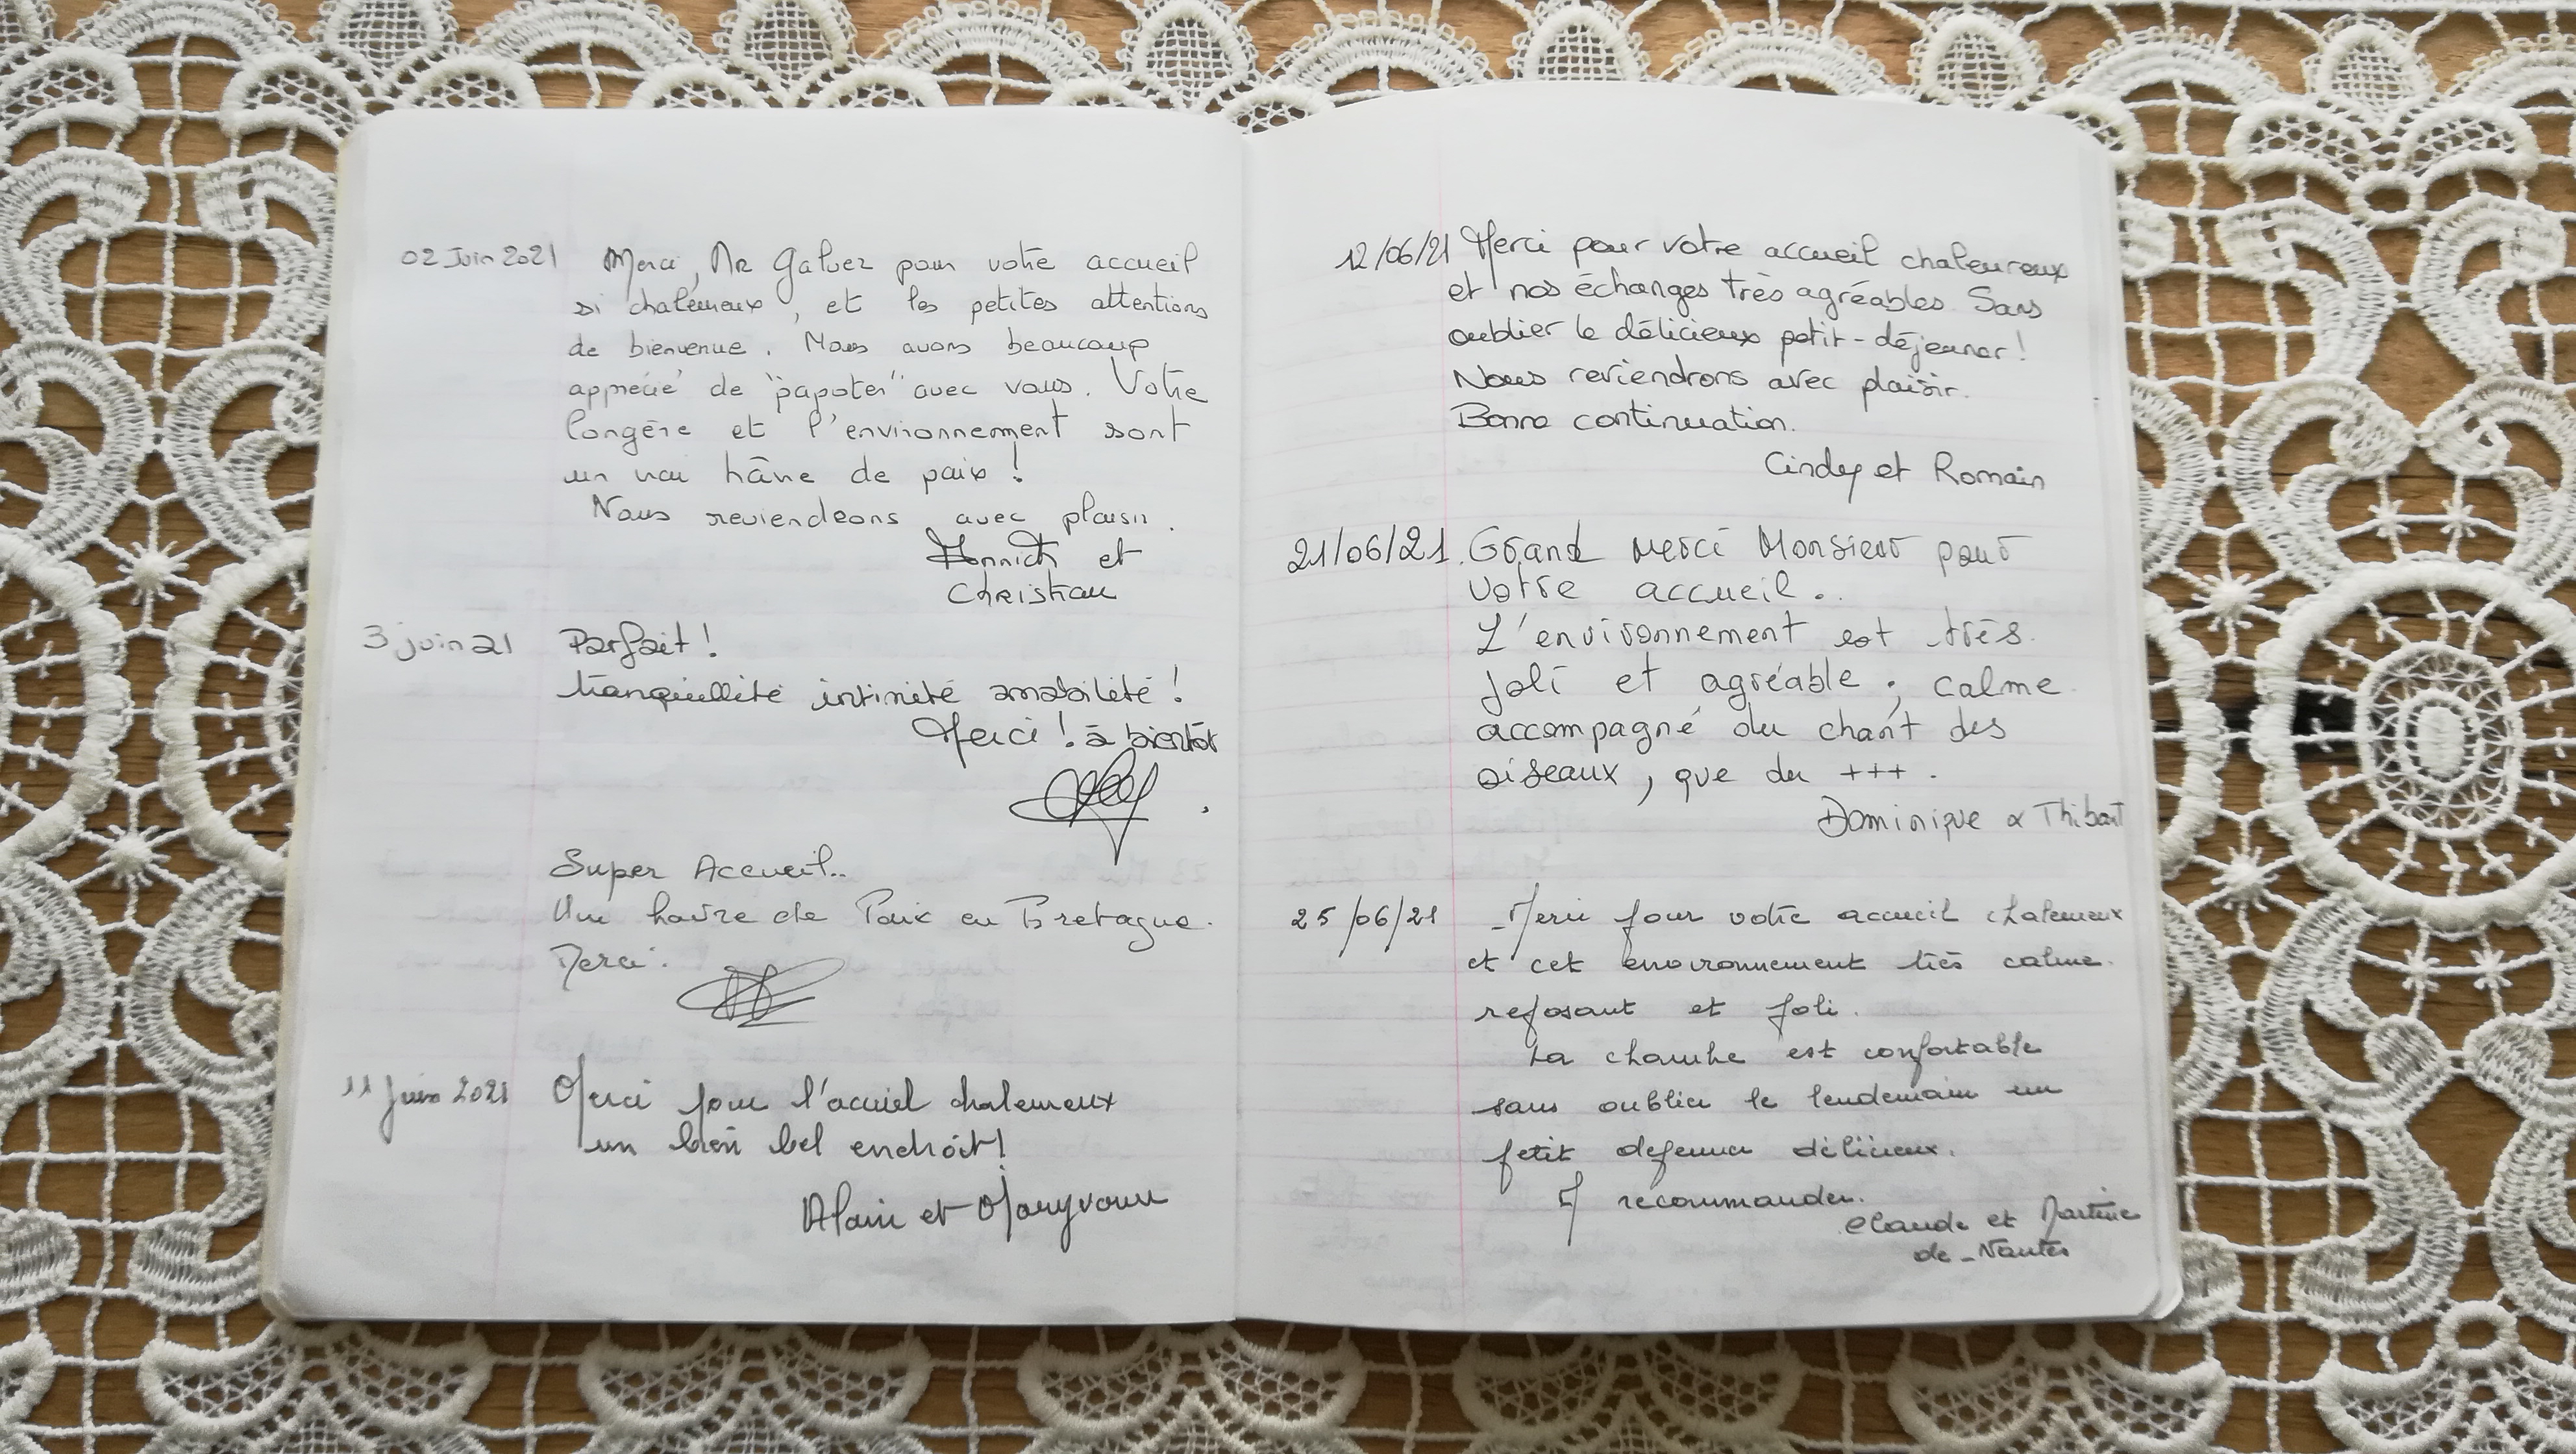 02 Juin 2021 Merci, Mr Galvez pour votre accueil
si chaleureux, et les petites attentions
de bienvenue. Nous avons beaucoup
apprécié de "papoter" avec vous. Votre
longère et l'environnement sont
un vrai hâvre de paix !
Nous reviendrons avec plaisir.
et
Christian
3 juin 21 Parfait !
tranquillité intimité amabilité !
Merci ! à bientôt
Super Accueil..
Un havre de Paix en Bretagne.
Merci.
11 Juin 2021 Merci pour l'acuiel chaleureux
un bien bel endroit !
Alain et Maryvonne
12/06/21 Merci pour votre accueil chaleureux
et nos échanges très agréables. Sans
oublier le délicieux petit-déjeuner !
Nous reviendrons avec plaisir.
Bonne continuation.
Cindy et Romain
21/06/21. Grand merci Monsieur pour
votre accueil..
L'environnement est très
joli et agréable ; calme
accompagné du chant des
oiseaux, que du +++.
Dominique & Thibaut
25/06/21 Merci pour votre accueil chaleureux
et cet environnement très calme.
reposant et joli.
La chambre est confortable
sans oublier le lendemain un
petit dejeuner délicieux.
A recommander.
Claude et Martine
de Nantes